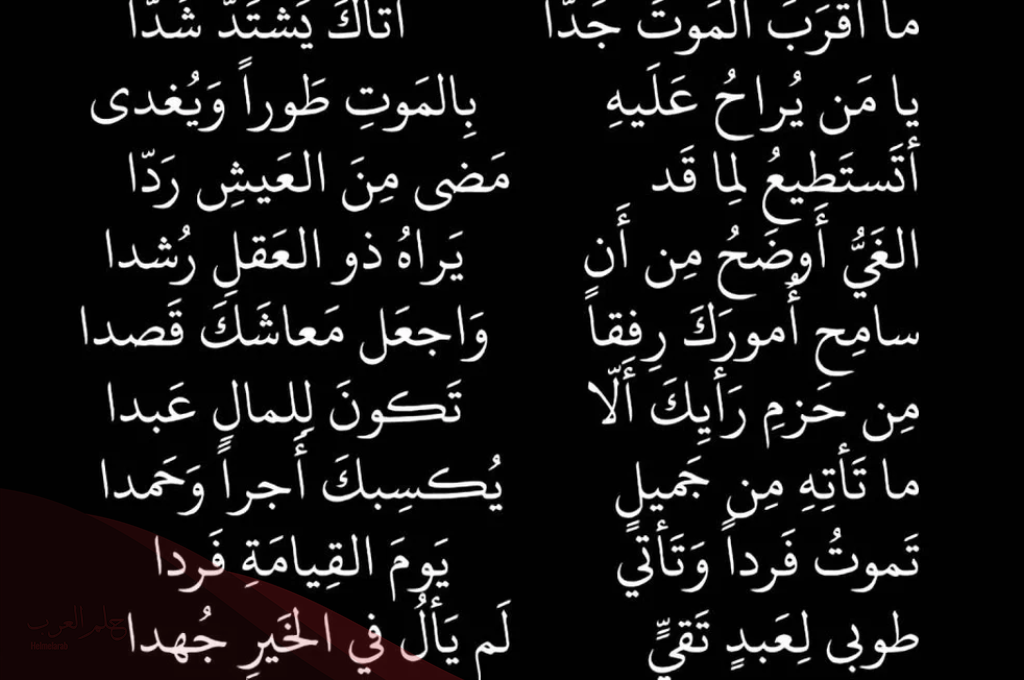 ما أَقرَبَ المَوتَ جَدّا أَتاكَ يَشتَدُّ شَدّا
يا مَن يُراحُ عَلَيهِ بِالمَوتِ طَوراً وَيُغدى
أَتَستَطيعُ لِما قَد مَضى مِنَ العَيشِ رَدّا
الغَيُّ أَوضَحُ مِن أَن يَراهُ ذو العَقلِ رُشدا
سامِح أُمورَكَ رِفقاً وَاجعَل مَعاشَكَ قَصدا
مِن حَزمِ رَأيِكَ أَلّا تَكونَ لِلمالِ عَبدا
ما تَأتِهِ مِن جَميلٍ يُكسِبكَ أَجراً وَحَمدا
تَموتُ فَرداً وَتَأتي يَومَ القِيامَةِ فَردا
طوبى لِعَبدٍ تَقيٍّ لَم يَألُ في الخَيرِ جُهدا
حلم العرب